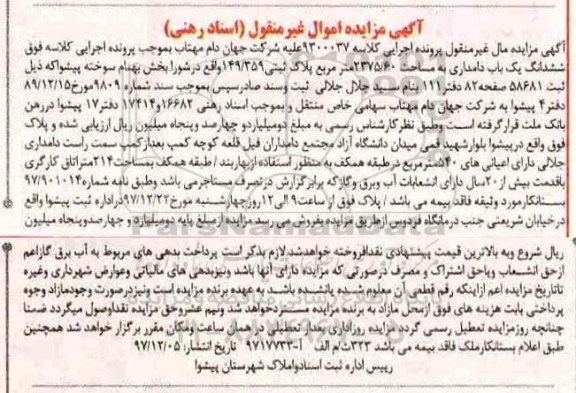 آگهی مزایده اموال غیرمنقول (اسناد رهنی)
آگهی مزایده مال غیرمنقول پرونده اجرایی کلاسه ۹۳۰۰۰۳۷علیه شرکت جهان دام مهتاب بموجب پرونده اجرایی کلاسه فوق
ششدانگ یک باب دامداری به مساحت ۲۳۷۵/۶۰متر مربع پلاک ثبتی۱۴۹/۳۵۹واقع درشورا بخش بهنام سوخته پیشواکه ذیل
ثبت ۵۸۶۸۱ صفحه۸۲ دفتر۱۱۱ بنام سید جلال جلالی ثبت وسند صادرسپس بموجب سند شماره ۹۸۰۹مورخ۸۹/۱۲/۱۵
دفتر۴ پیشوا به شرکت جهان دام مهتاب سهامی خاص منتقل و بموجب اسناد رهنی ۱۶۶۸۲و۱۷۴۱۴ دفتر۱۷ پیشوا دررهن
بانک ملت قرارگرفته است وطبق نظرکارشناس رسمی به مبلغ دومیلیاردو چهارصد وپنجاه میلیون ریال ارزیابی شده و پلاک
فوق واقع درپیشوا بلوارشهید قمی میدان دانشگاه آزاد مجتمع دامداران فیل قلعه کوچه کمپ بعدازکمپ سمت راست دامداری
جلالی دارای اعیانی های ۵۴۰مترمربع درطبقه همکف به منظور استفاده ازبهاربند / طبقه همکف بمساحت۲۱۴متراتاق کارگری
باقدمت بیش از۲۰سال دارای انشعابات آب وبرق وگازکه برابرگزارش درتصرف مستاجرمی باشد وطبق نامه شماره۹۷/۹۰۱۰۱۴
بستانکارمورد وثیقه فاقد بیمه می باشد / پلاک فوق از ساعت۹ الی ۱۲روزچهارشنبه مورخ۹۷/۱۲/۲۲دراداره ثبت پیشوا واقع
درخیابان شریعتی جنب درمانگاه فردوس ازطریق مزایده بفروش می رسد مزایده ازمبلغ پایه دومیلیارد و چهارصدوپنجاه میلیون
ریال شروع وبه بالاترین قیمت پیشنهادی نقدافروخته خواهدشدلازم بذکر است پرداخت بدهی های مربوط به آب برق گازاعم
ازحق انشعاب ویاحق اشتراک و مصرف درصورتی که مزایده دارای آنها باشد ونیزبدهی های مالیاتی وعوارض شهرداری وغیره
تاتاریخ مزایده اعم ازاینکه رقم قطعی آن معلوم شده یانشده باشد به عهده برنده مزایده است ونیزدرصورت وجودمازاد وجوه
پرداختی بابت هزینه های فوق ازمحل مازاد به برنده مزایده مستردخواهدشد ونیم عشروحق مزایده نقداوصول میگردد ضمنا
چنانچه روزمزایده تعطیل رسمی گردد مزایده روزاداری بعداز تعطیل در همان ساعت ومکان مقرر برگزار خواهد شد همچنین
طبق اعلام بستانکارملک فاقد بیمه می باشد ۳۲۳ث/م الف آ-۹۷۱۷۷۳۳ تاریخ انتشار: ۹۷/۱۲/۰۵
رییس اداره ثبت اسنادواملاک شهرستان پیشوا